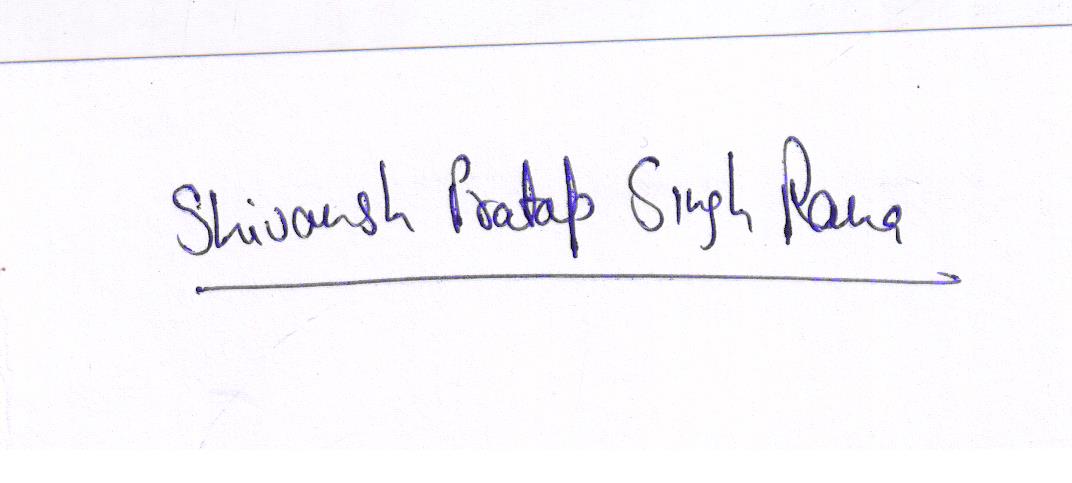 Shivansh Pratap Singh Rana